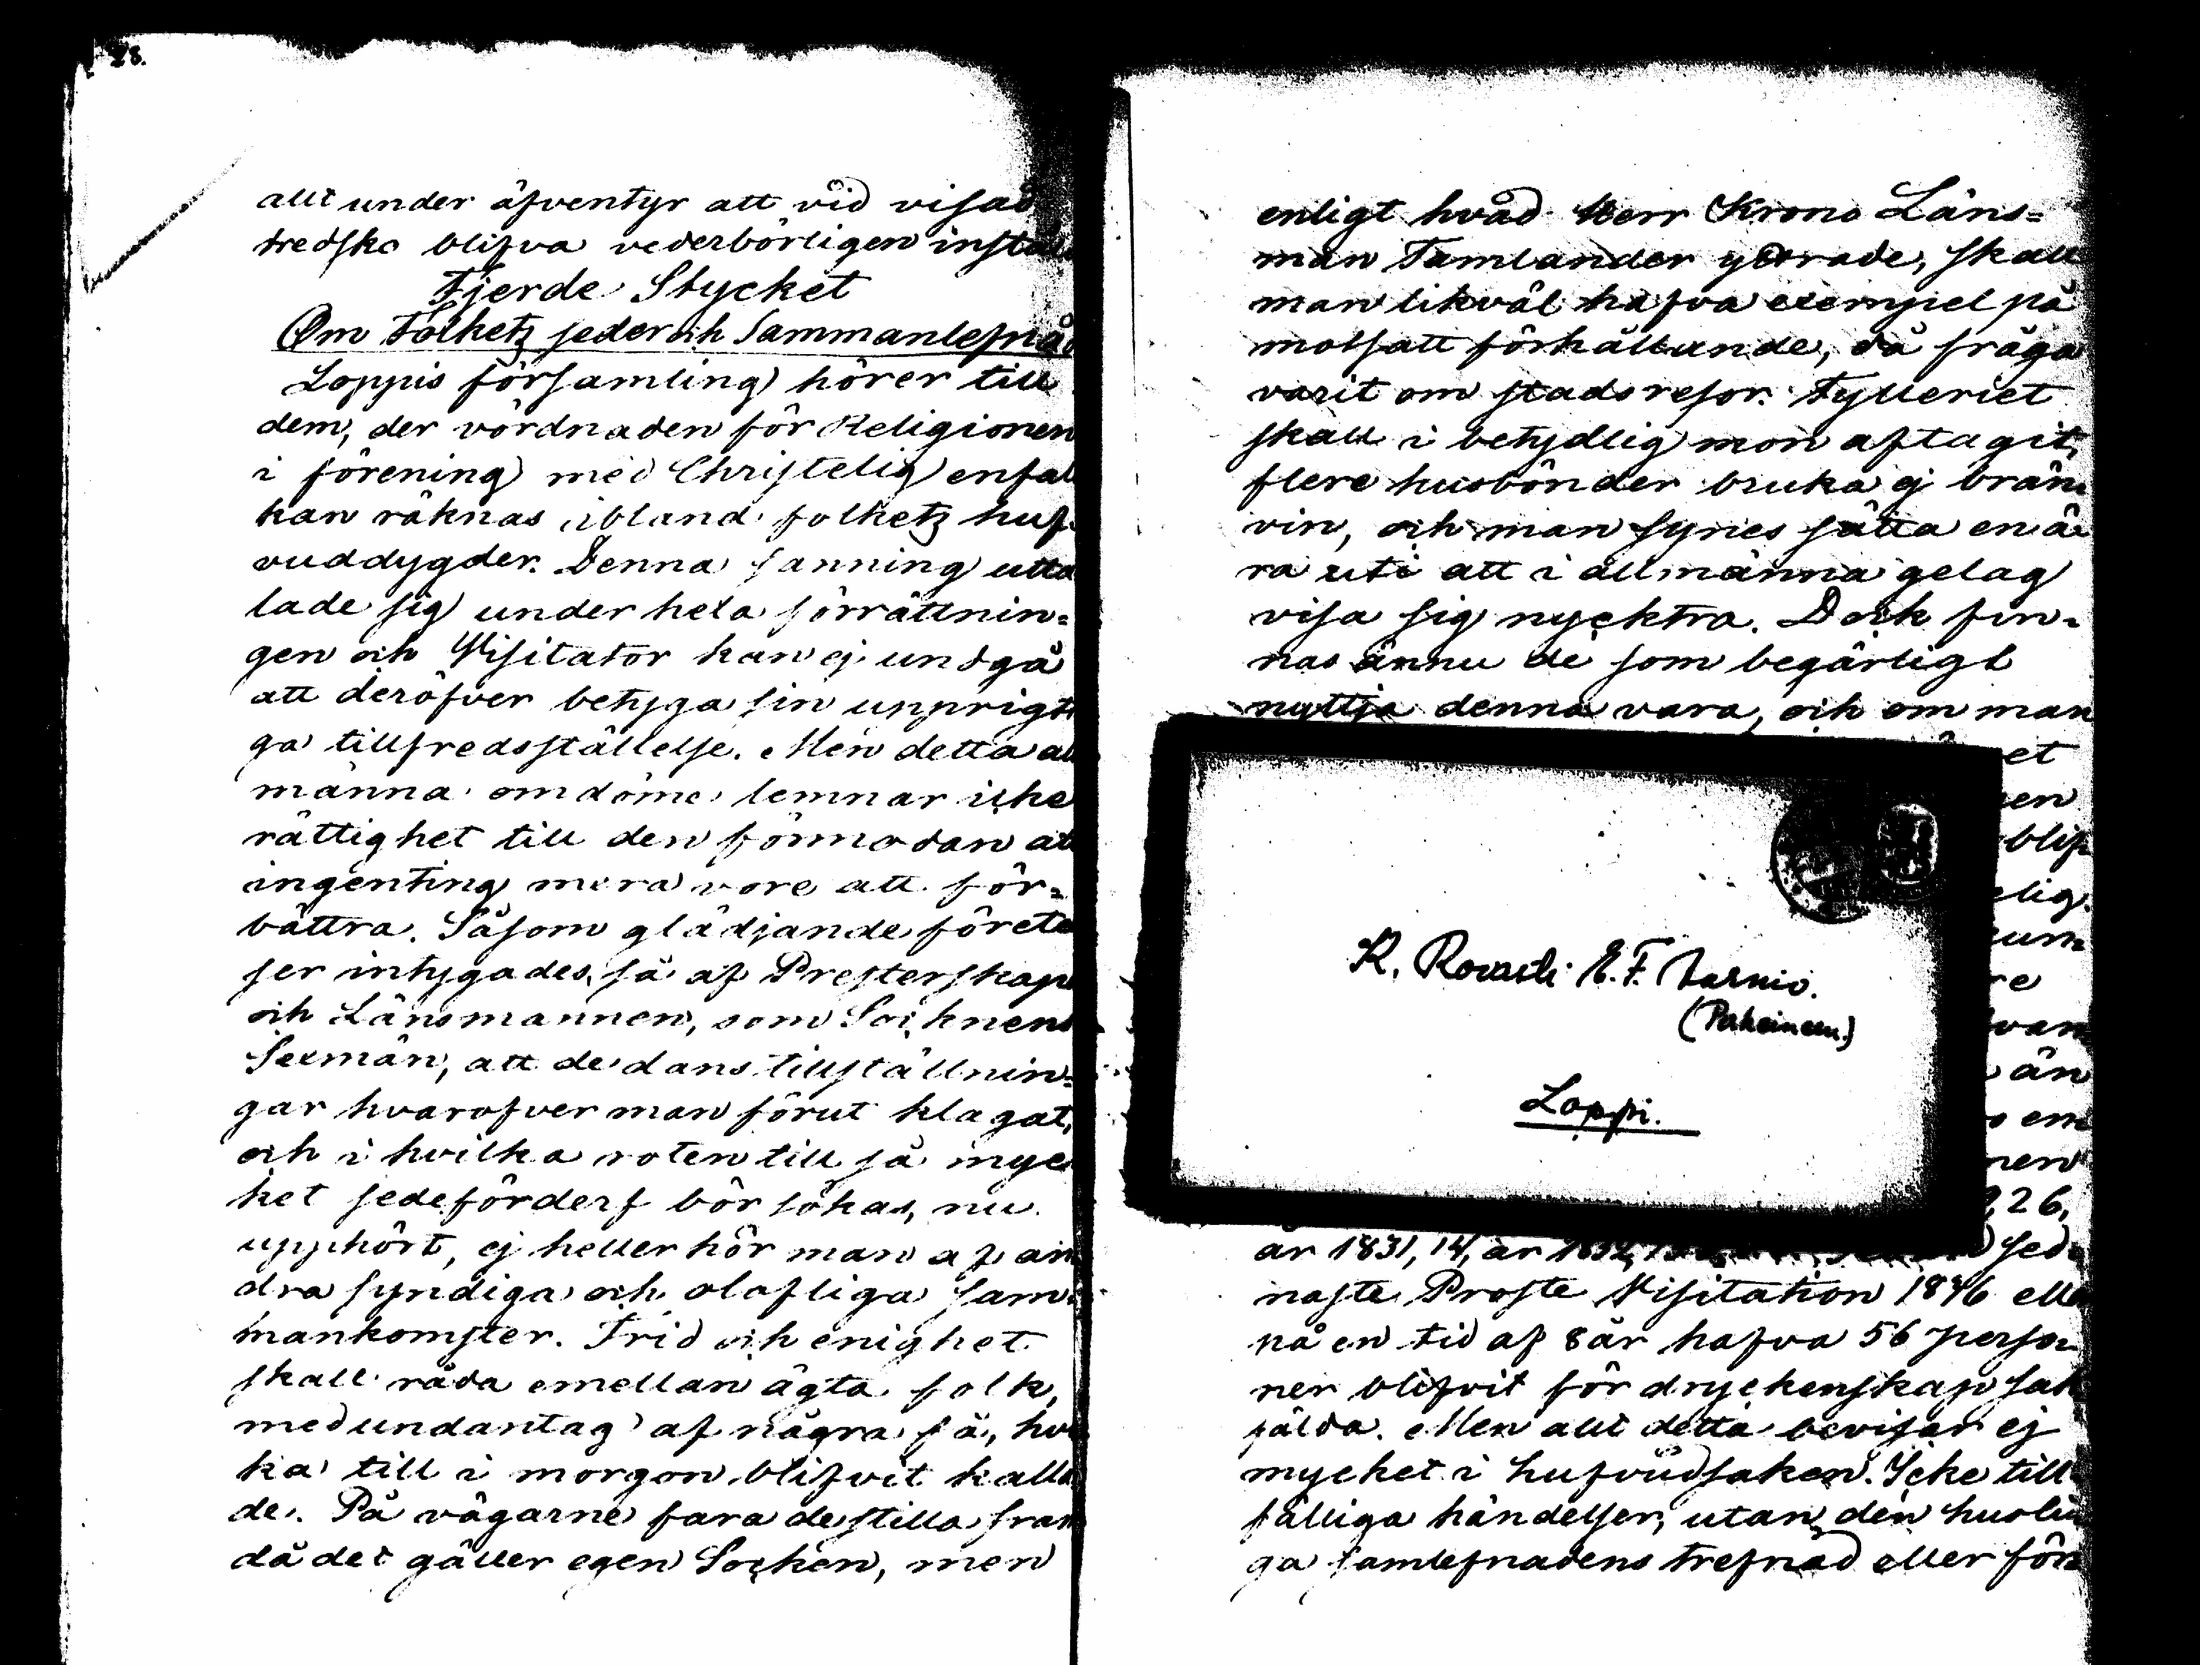 28.
allt under äfventyr att vid visad
tredska blifva vederbörligen instäl
Fjerde Stycket
Om Folketz seder och Sammanlefnad
Loppis församling hörer till
dem, der vördnaden för Religionen
i förening med Christelig enfal
kan räknas ibland folketz huf
vuddygder. Denna sanning utta
lade sig under hela förrättnin=
gen och Visitator kan ej undgå
att deröfver betyga sin upprigti
ga tillfredsställelse. Men detta all
männa omdöme lemnar icke
rättighet till den förmodan att
ingenting mera vore att för=
bättra. Såsom glädjande förete
ser intygades, så af Presterskap
och Länsmannen, som Socknens
Sexmän, att de danstillställnin=
gar hvaröfver man förut klagat,
och i hvilka roten till så myc
ket sedeförderf bör sökas, nu
upphört, ej heller hör man af an
dra syndiga och olofliga sam=
mankomster. Frid och enighet
skall råda emellan ägta folk,
med undantag af några få, hvil
ka till i morgon blifvit kalla
de. På vägarne fara de stilla fram
då det gäller egen Socken, men
enligt hvad Herr Krono Läns=
man Tamlander yttrade, skall
man likväl hafva exempel på
motsatt förhållande, då fråga
varit om stadsresor. Fylleriet
skall i betydlig mon aftagit,
flere husbönder bruka ej brän
vin, och man synes sätta en ä
ra uti att i allmänna gelag
visa sig nycktra. Dock fin=
nas ännu de som begärligt
nyttja denna vara, och om man
et
en
blif
elig.
kum
re
van
än
em
nen
26,
år 1831, 14, år sed
naste Proste Visitation 1846 eller
på en tid af 8 år hafva 56 perso
ner blifvit för dryckenskap sak
fälda. Men allt detta bevisar ej
mycket i hufvudsaken. Icke till
fälliga händelser, utan den husli
ga samlefnadens trefnad eller för
K. Rovasti E. F.
Loppi.